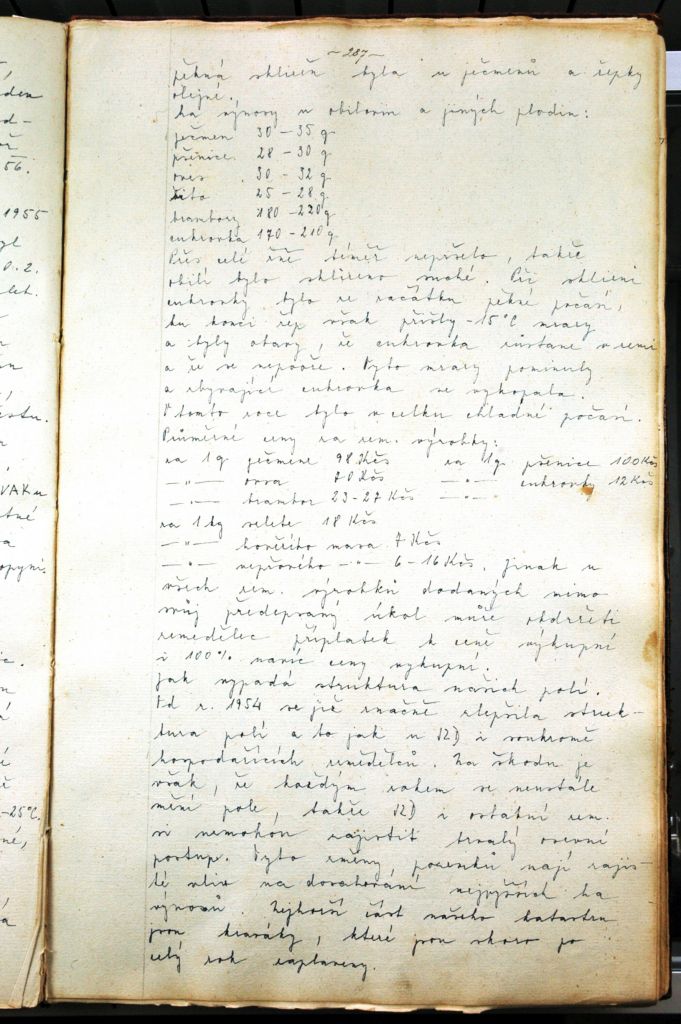 - 287 -
pěkná sklizeň byla u ječmenů a řepky
olejné.
ha výnosy u obilovin a jiných plodin:
ječmen 30 - 35 q
pšenice 28 - 30 q
oves 30 - 32 q
žito 25 - 28 q
brambory 180 - 220 q
cukrovka 170 - 210 q
Přes celé žně téměř nepršelo, takže
obilí bylo sklizeno suché. Při sklizni
cukrovky bylo ze začátku pěkné počasí,
ku konci řep však přišly -15°C mrazy
a byly obavy, že cukrovka zůstane v zemi
a že se nepooře. Tyto mrazy pominuly
a zbývající cukrovka se vykopala.
V tomto roce bylo v celku chladné počasí.
Průměrné ceny za zem. výrobky:
za 1 q ječmene 98 Kčs za 1 q pšenice 100 Kčs
-"- ovsa 70 Kčs -"- cukrovky 12 Kčs
-"- brambor 23-27 Kčs -"-
za 1 kg selete 18 Kčs
-"- hovězího masa 7 Kčs
-"- vepřového -"- 6-16 Kčs. Jinak u
všech zem. výrobků dodaných mimo
svůj předepsaný úkol může obdržeti
zemědělec příplatek k ceně výkupní
i 100% navíc ceny výkupní.
Jak vypadá struktura našich polí.
Od r. 1954 se již značně zlepšila struk-
tura polí a to jak u JZD i soukromě
hospodařících zemědělců. Na škodu je
však, že každým rokem se neustále
mění pole, takže JZD i ostatní zem.
si nemohou zajistit trvalý osevní
postup. Tyto změny pozemků mají zajis-
té vliv na dosahování nejvyšších ha
výnosů. Nejhorší část našeho katastru
jsou kraváky, které jsou skoro po
celý rok zaplaveny.